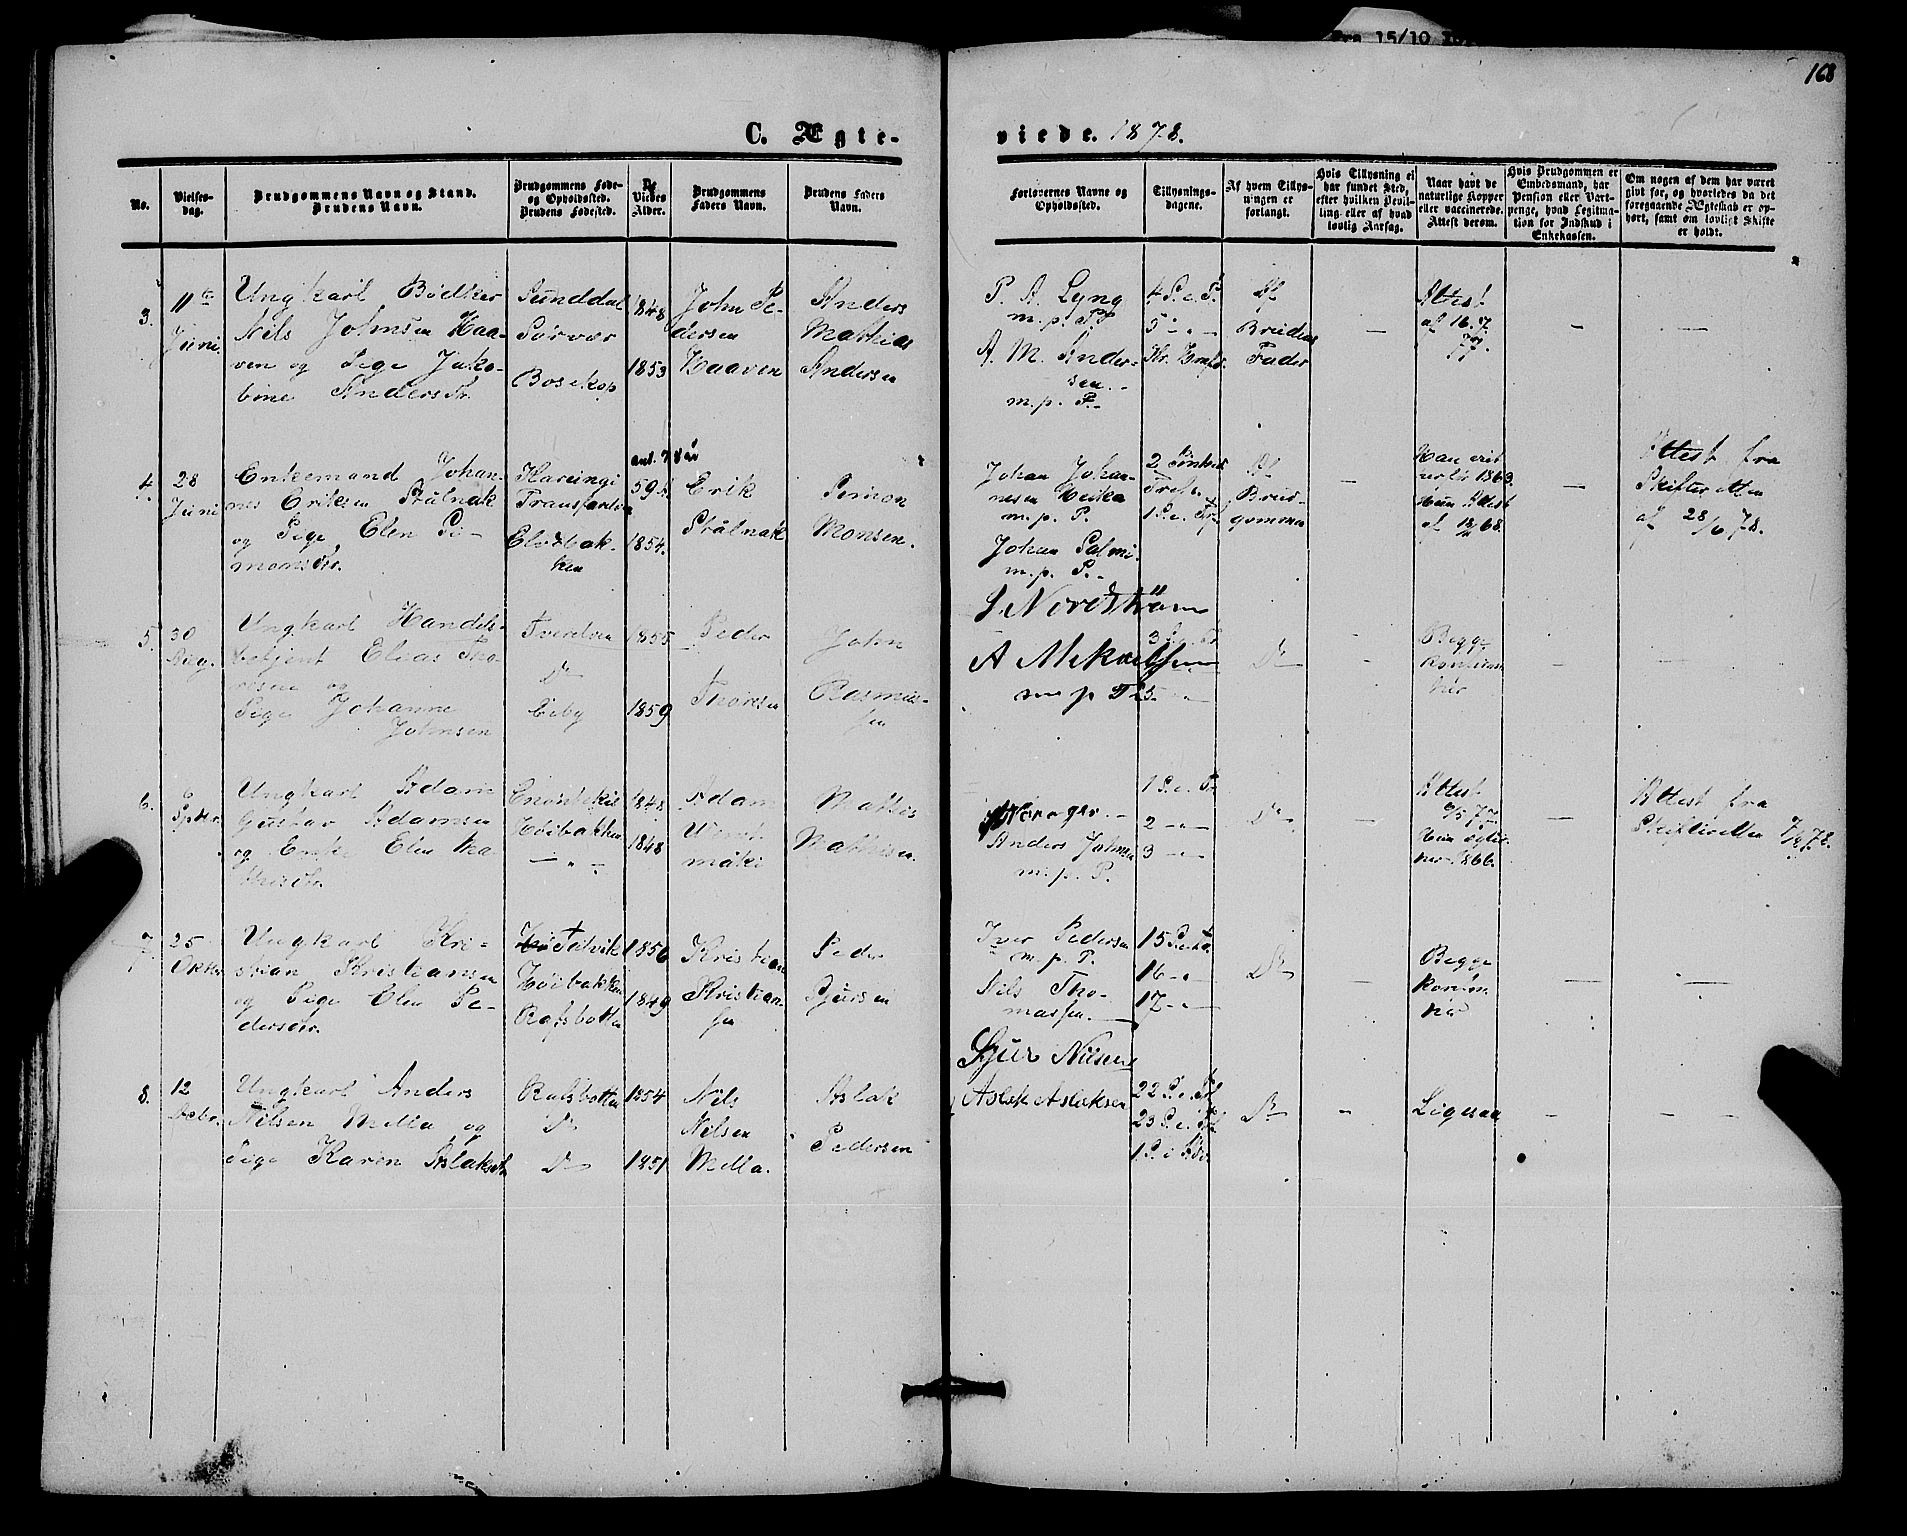 Fra 15/10
168
C. Ægte-
viede. 1878.
No.
Vielses-
dag.
Brudgommens Navn og Stand.
Brudens Navn.
Brudgommens Føde-
og Opholdssted.
Brudens Fødested.
De
Viedes
Alder.
Brudgommens
Faders Navn.
Brudens Faders
Navn.
Forlovernes Navne og
Opholdssted.
Tillysnings-
dagene.
Af hvem Tillys-
ningen er
forlangt.
Hvis Tillysning ei
har fundet Sted,
efter hvilken Bevil-
ling eller af hvad
lovlig Aarsag.
Naar havt de
naturlige Kopper
eller vaccinerede.
Attest derom.
Hvis Brudgommen er
Embedsmand, har
Pension eller Vart-
penge, hvad Legitima-
tion for Indskud i
Enkekassen.
Om nogen af dem har været
givt før, og hvorledes da det
foregaaende Ægteskab er op-
hørt, samt om lovligt Skifte
er holdt.
3.
11te
Juni.
Ungkarl Bødker
Nils Johnsen Haa-
ven og Pige Jako-
bine Andersdtr.
Sunddal
Sørvær
Bosekop
1848
1853
John Pe-
dersen
Haaven
Anders
Mathias
Andersen
P. A. Lyng
m. p. P.
A. M. Ander-
sen.
m. p. P.
4 S. e. P.
5 " "
Af
Brudens
Fader
Attest
af 16.7
77.
4.
28
Juni
Enkemand Johan-
nes Eriksen Stålnak
og Pige Elen Si-
monsdtr.
Karungi
Elvebak-
ken
59 A.
1854.
Erik
Stålnak
Simon
Monsen.
Johan Johan-
nesen Heika
m. p. P.
Johan Salmi
m. p. P.
Af
Brud-
gommen
Hun Attest
Attest fra
Skifteretten
af 28/6 78.
5.
30
Aug.
Ungkarl Handels-
betjent Elias Tho-
resen og
Pige Johanne
Johnsen
Tverelven
Do
Eiby
1855
1859
Peder
Thoresen
John
Rasmus-
sen
J. Nordström
A Mikkelsen
m p P
Do
Begge
Kommun
her
6.
6
Septbr.
Ungkarl Adam
Gustav Adamsen
og Enke Elen Ma-
thisdtr.
Enontekis
Høibakken
— " —
1848
1848
Adam
Mathis
Mathisen
Anders Johnsen
m. p. P.
1 S. e. Tr
2 - " -
3 - " -
Do
Attest
Attest fra
Skifteretten 7/9 78.
7.
25
Oktbr.
Ungkarl Kri-
stian Kristiansen
og Pige Elen Pe-
dersdtr.
Høibakken
Rafsbotten
1856
1849
Kristian
Kristian-
sen
Peder
Sjursen
Iver Pedersen
m. p. P.
Nils Tho-
massen.
15 S. e. Tr.
16 - " -
17 - " -
Do
Begge
Kommun
her
8.
12
Decbr.
Ungkarl Anders
Nilsen Mella og
Pige Karen Aslaksdtr
Rafsbotten
Do
Do
1854
1851
Nils
Nilsen
Mella.
Aslak
Pedersen
Sjur Nilsen
Aslak Aslaksen
22 S. e. Tr
23 S. e. Tr
1 S. i Adv.
Do
Ligesaa